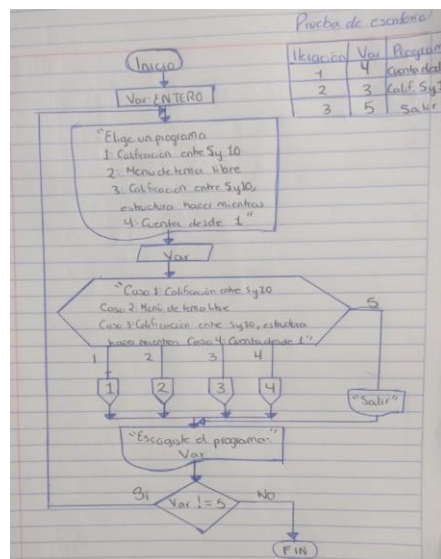 Prueba de escritorio
Iteración Var Program
1 4 Cuenta desd
2 3 Calif. 5y10
3 5 Salir
Inicio
Var: ENTERO
"Elige un programa
1: Calificación entre 5y10
2: Menú de tema libre
3: Calificación entre 5y10,
estructura hacer mientras
4: Cuenta desde 1"
Var
"Caso 1: Calificación entre 5y10
Caso 2: Menú de tema libre
Caso 3: Calificación entre 5y10, estructura
hacer mientras Caso 4: Cuenta desde 1"
5
1 2 3 4
1 2 3 4
"Salir"
"Escogiste el programa:"
Var
Si Var != 5 No
FIN